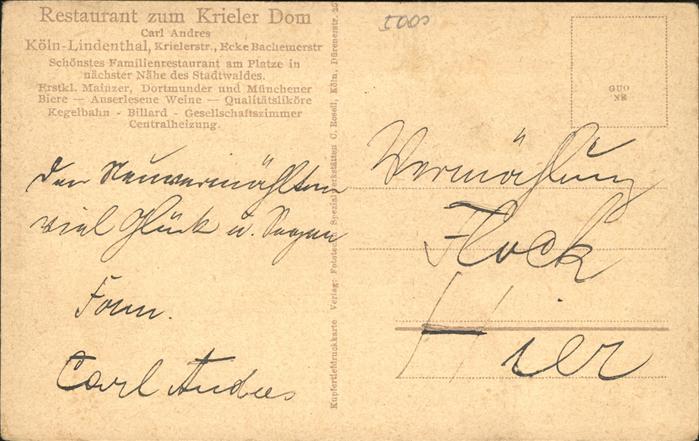 Restaurant zum Krieler Dom
Carl Andres
Köln-Lindenthal, Krielerstr., Ecke Bachemerstr
Schönstes Familienrestaurant am Platze in
nächster Nähe des Stadtwaldes.
Erstkl. Mainzer, Dortmunder und Münchener
Biere — Auserlesene Weine — Qualitätsliköre
Kegelbahn - Billard - Gesellschaftszimmer
Centralheizung.
Den Neuvermählten
viel Glück u. Segen
Fam.
Carl Andres
Kupfertiefdruckkarte Verlag: Spezialwerkstätten C. Rosell, Köln, Dürenerstr.
5000
Vermählung
Flock
Hier